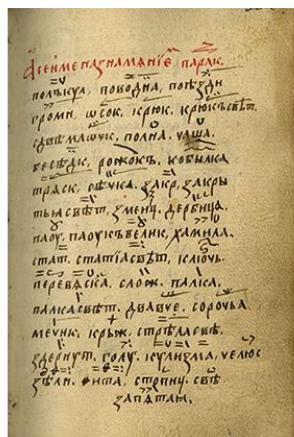 А се имена знамянїе параклит
полъкула, поводна, поѣзди
громн. ѡсок. крюк. крюкъсвѣт.
сдвѣма чук. полна. чаша.
бесѣдк, рожокъ. кобылка
тряск. ѡвѣчка. закр, закры
тыасвѣт, змеиц. дербица.
паоу. паоукъвелик, хамила.
стат. статїасвѣт. ключь.
перевяска. слож. палка.
палкасвѣт. двѣвче. сорочьа
мечик. крыж. стрѣласвѣ.
здернут. голу. кулизма, челюс
зѣлн. ѳита, стопиц. свѣ
запѧтаи.